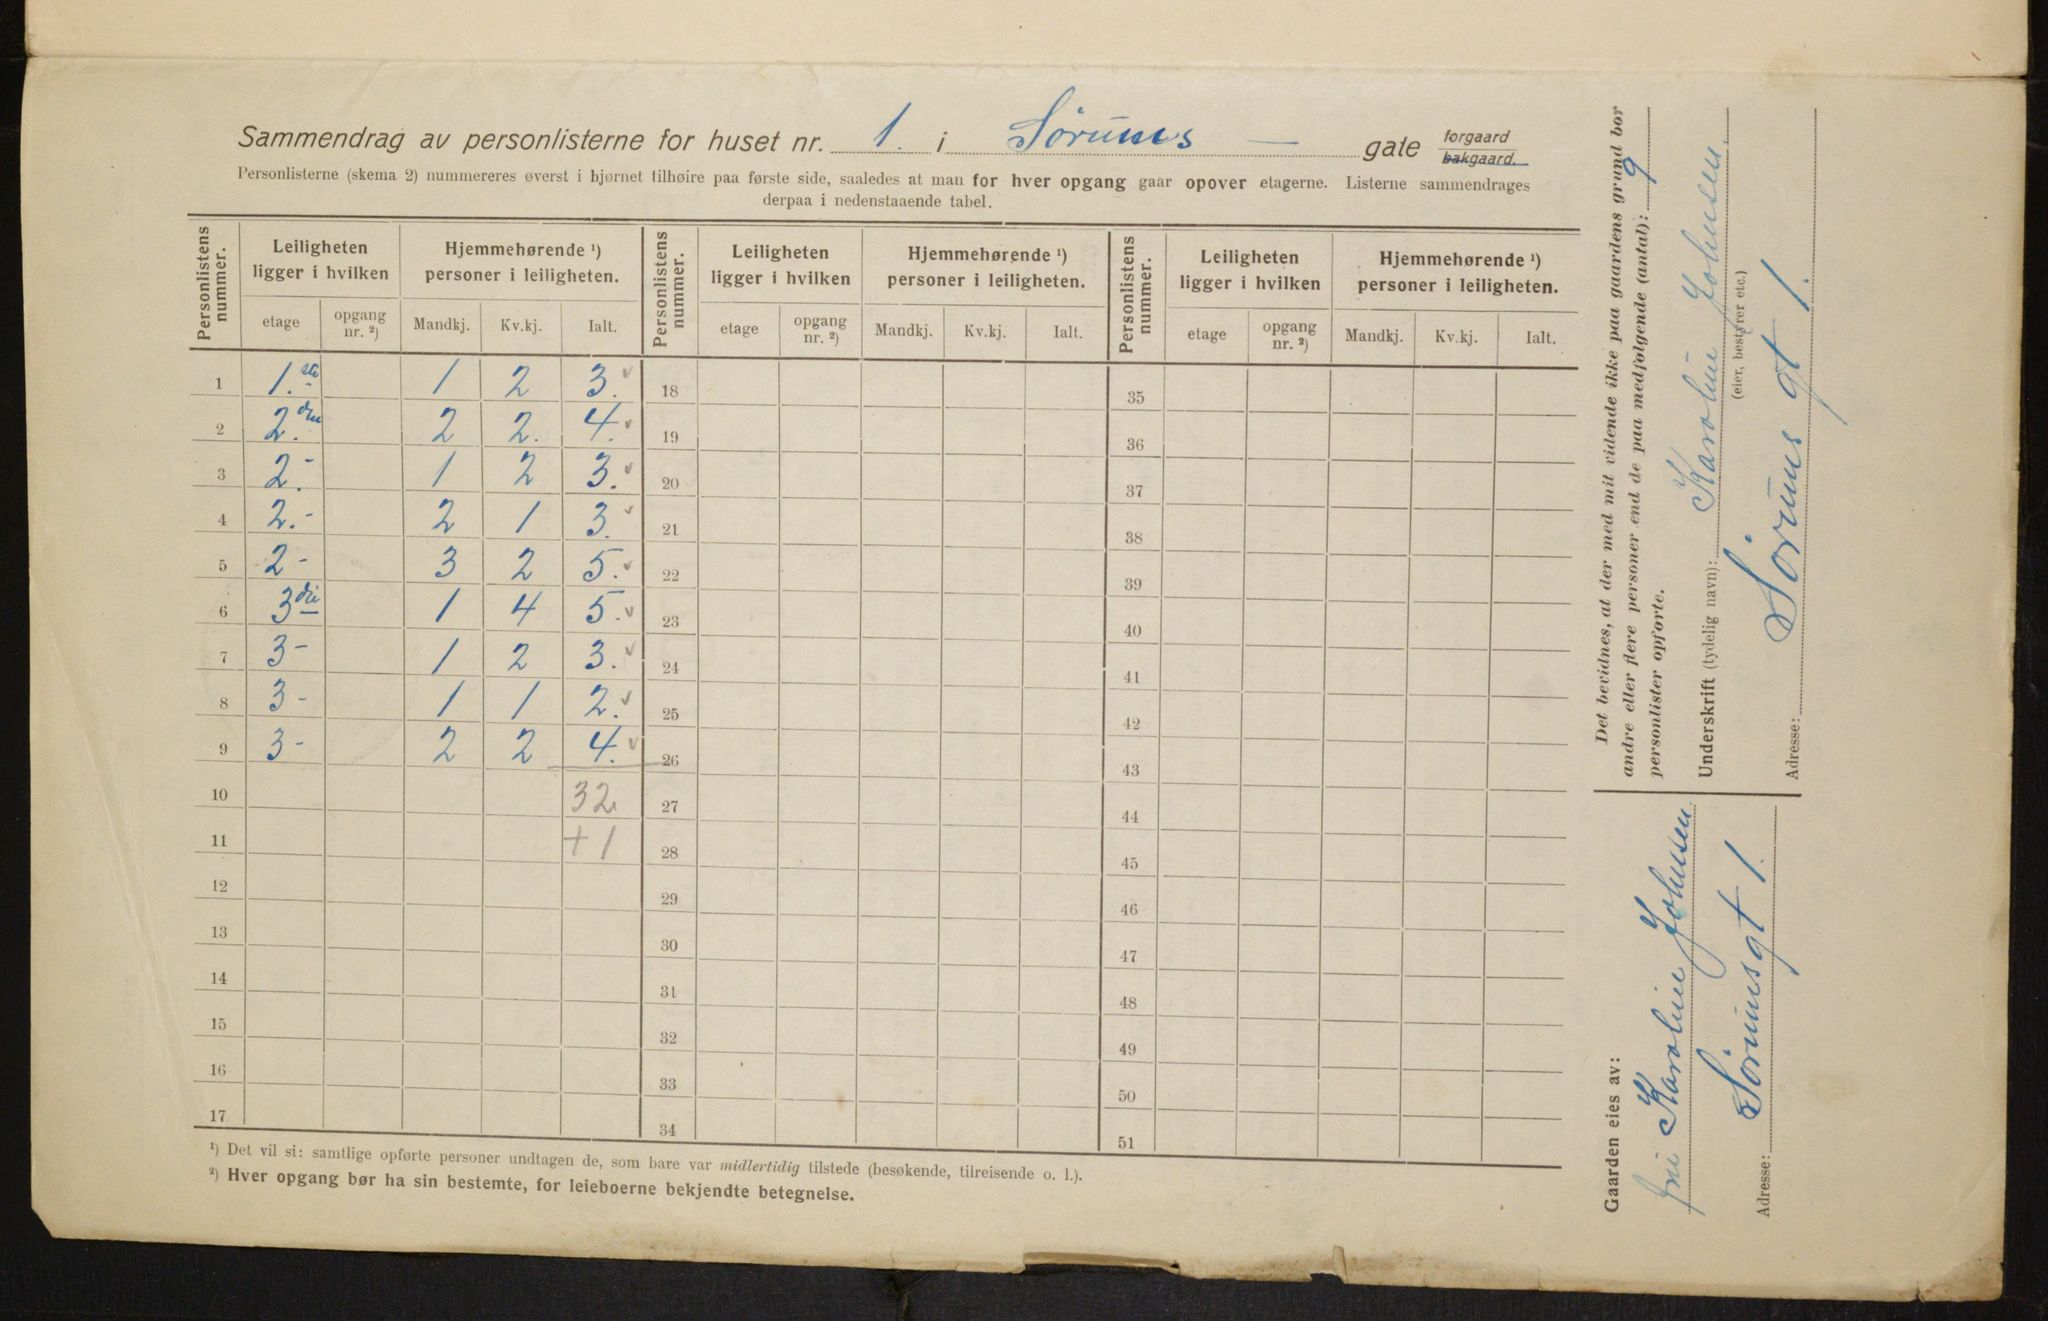 Sammendrag av personlisterne for huset nr. 1. i Sørums — gate forgaard bakgaard.
Personlisterne (skema 2) nummereres øverst i hjørnet tilhøire paa første side, saaledes at man for hver opgang gaar opover etagerne. Listerne sammendrages
derpaa i nedenstaaende tabel.
Personlistens nummer. Leiligheten ligger i hvilken Hjemmehørende ¹) personer i leiligheten. Personlistens nummer. Leiligheten ligger i hvilken Hjemmehørende ¹) personer i leiligheten. Personlistens nummer. Leiligheten ligger i hvilken Hjemmehørende ¹) personer i leiligheten.
etage opgang nr. ²) Mandkj. Kv.kj. Ialt. etage opgang nr. ²) Mandkj. Kv.kj. Ialt. etage opgang nr. ²) Mandkj. Kv.kj. Ialt.
1 1.ste 1 2 3. 18 35
2 2.den 2 2. 4. 19 36
3 2.- 1 2 3. 20 37
4 2.- 2 1 3. 21 38
5 2- 3 2 5. 22 39
6 3die 1 4 5. 23 40
7 3- 1 2 3. 24 41
8 3- 1 1 2. 25 42
9 3- 2 2 4. 26 43
10 32 27 44
11 +1 28 45
12 29 46
13 30 47
14 31 48
15 32 49
16 33 50
17 34 51
¹) Det vil si: samtlige opførte personer undtagen de, som bare var midlertidig tilstede (besøkende, tilreisende o. l.).
²) Hver opgang bør ha sin bestemte, for leieboerne bekjendte betegnelse.
Det bevidnes, at der med mit vidende ikke paa gaardens grund bor
andre eller flere personer end de paa medfølgende (antal): 9
personlister opførte.
Underskrift (tydelig navn): Karoline Johnsen.
(eier, bestyrer etc.)
Adresse: Sørums gt 1.
Gaarden eies av:
Karoline Johnsen.
Adresse: Sørumsgt 1.